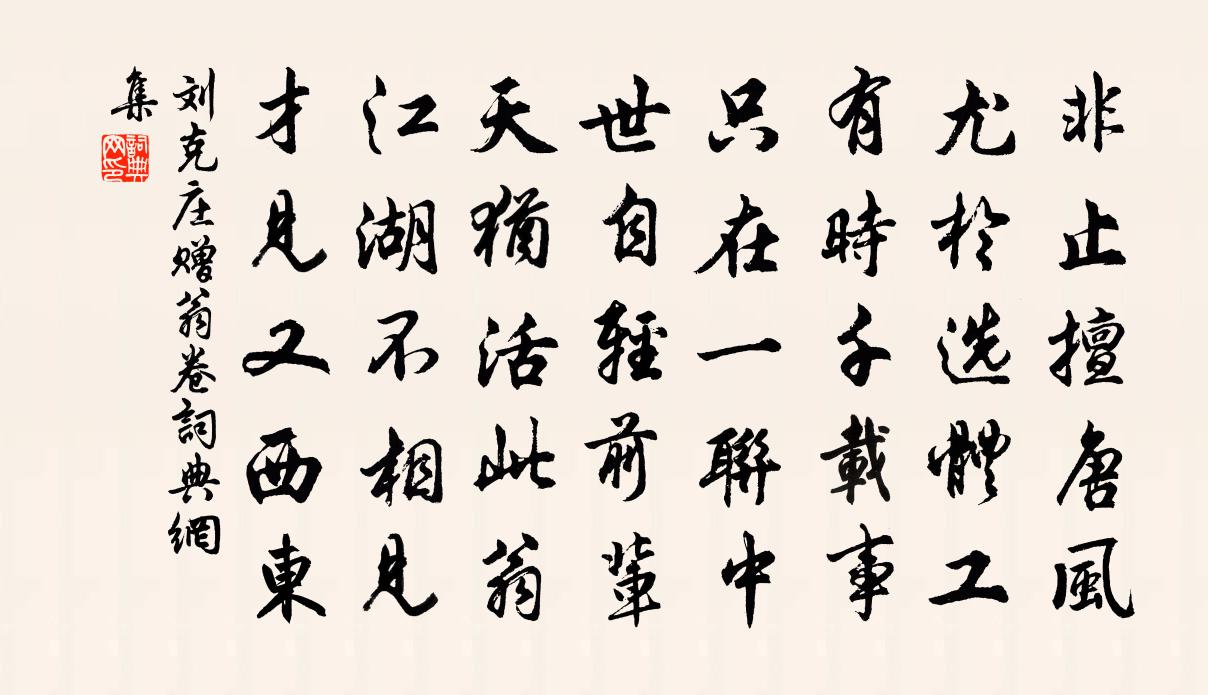 非止擅唐風
尤於选體工
有時千載事
只在一聯中
世自輕前輩
天猶活此翁
江湖不相見
才見又西東
刘克庄赠翁卷詞典網
集
詞典
网印